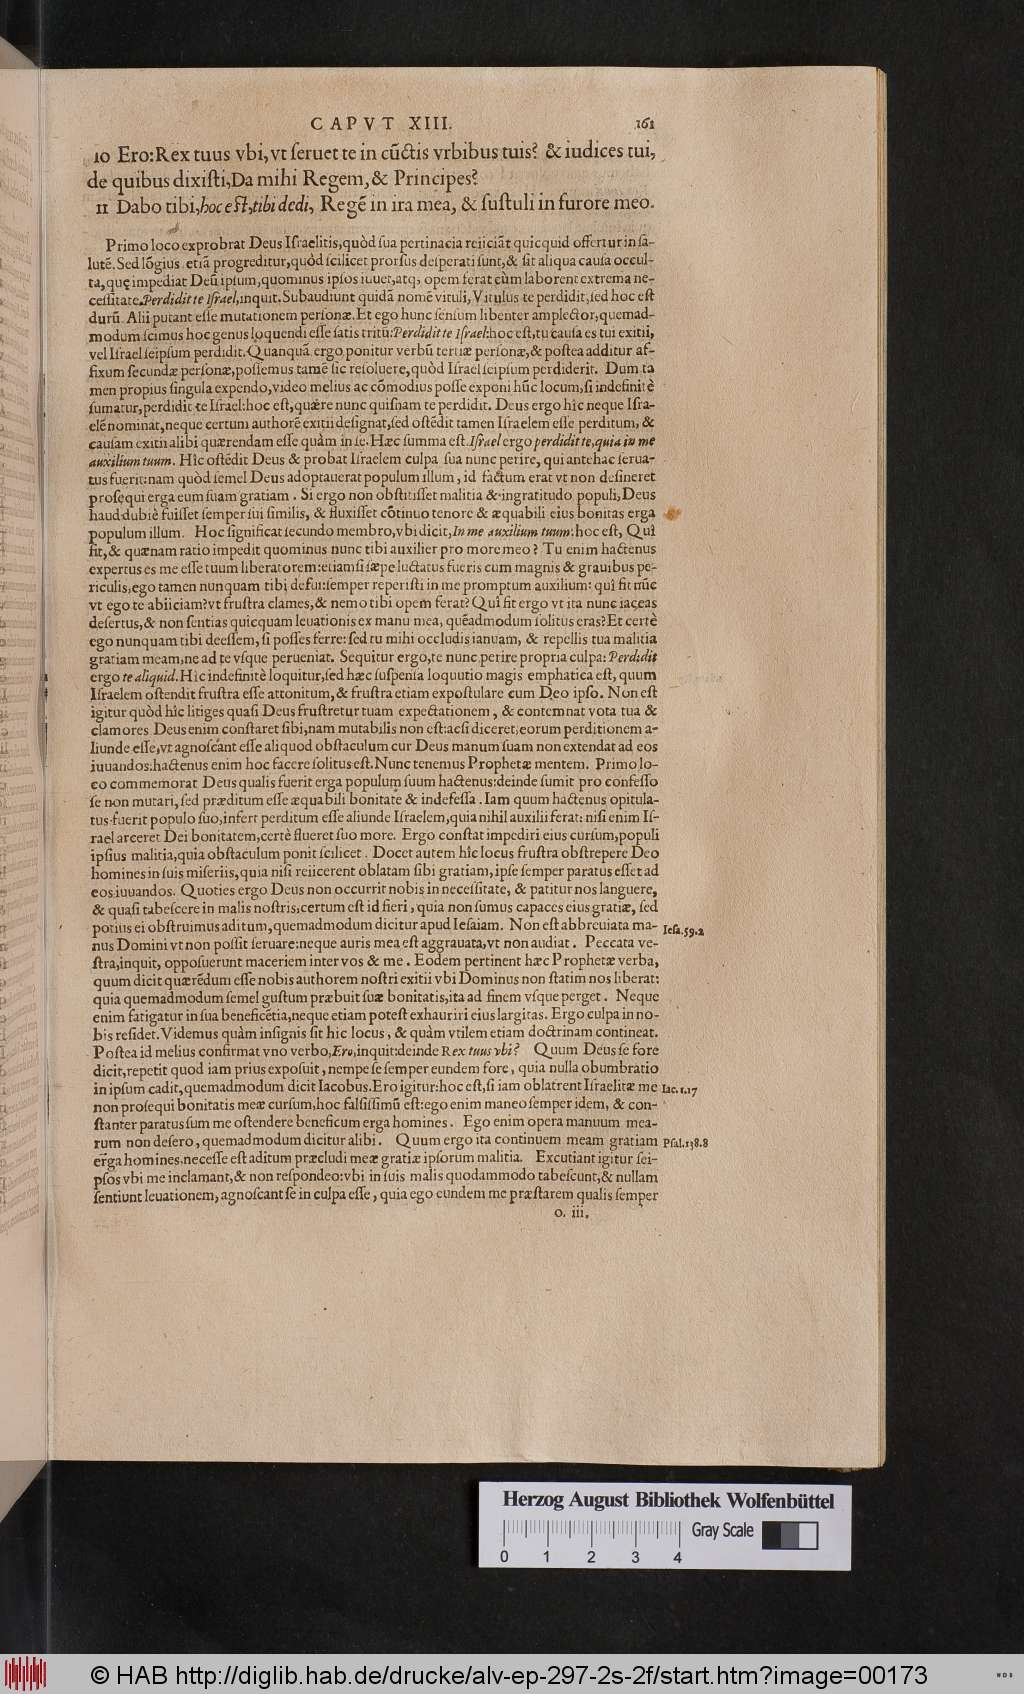 CAPVT XIII. 161
10 Ero: Rex tuus vbi, vt ſeruet te in cũctis vrbibus tuis? & iudices tui,
de quibus dixiſti, Da mihi Regem, & Principes?
11 Dabo tibi, hoc eſt, tibi dedi, Regẽ in ira mea, & ſuſtuli in furore meo.
Primo loco exprobrat Deus Iſraelitis, quòd ſua pertinacia reiiciãt quicquid offertur in ſa-
lutẽ. Sed lõgius etiã progreditur, quòd ſcilicet prorſus deſperati ſunt, & ſit aliqua cauſa occul-
ta, quę impediat Deũ ipſum, quominus ipſos iuuet, atq; opem ferat cùm laborent extrema ne-
ceſſitate. Perdidit te Iſrael, inquit. Subaudiunt quidã nomẽ vituli, Vitulus te perdidit, ſed hoc eſt
durũ. Alii putant eſſe mutationem perſonæ. Et ego hunc ſenſum libenter amplector, quemad-
modum ſcimus hoc genus loquendi eſſe ſatis tritũ: Perdidit te Iſrael: hoc eſt, tu cauſa es tui exitii,
vel Iſrael ſeipſum perdidit. Quanquã ergo ponitur verbũ tertiæ perſonæ, & poſtea additur af-
fixum ſecundæ perſonæ, poſſemus tamẽ ſic reſoluere, quòd Iſrael ſeipſum perdiderit. Dum ta
men propius ſingula expendo, video melius ac cõmodius poſſe exponi hũc locum, ſi indefinitè
ſumatur, perdidit te Iſrael: hoc eſt, quære nunc quiſnam te perdidit. Deus ergo hîc neque Iſra-
elẽ nominat, neque certum authorẽ exitii deſignat, ſed oſtẽdit tamen Iſraelem eſſe perditum, &
cauſam exitii alibi quærendam eſſe quàm in ſe. Hæc ſumma eſt. Iſrael ergo perdidit te, quia in me
auxilium tuum. Hîc oſtẽdit Deus & probat Iſraelem culpa ſua nunc perire, qui antehac ſerua-
tus fuerit: nam quòd ſemel Deus adoptauerat populum illum, id factum erat vt non deſineret
proſequi erga eum ſuam gratiam. Si ergo non obſtitiſſet malitia & ingratitudo populi, Deus
haud dubiè fuiſſet ſemper ſui ſimilis, & fluxiſſet cõtinuo tenore & æquabili eius bonitas erga
populum illum. Hoc ſignificat ſecundo membro, vbi dicit, In me auxilium tuum: hoc eſt, Quî
fit, & quænam ratio impedit quominus nunc tibi auxilier pro more meo? Tu enim hactenus
expertus es me eſſe tuum liberatorem: etiamſi ſæpe luctatus fueris cum magnis & grauibus pe-
riculis, ego tamen nunquam tibi defui: ſemper reperiſti in me promptum auxilium: quî fit nũc
vt ego te abiiciam? vt fruſtra clames, & nemo tibi opem ferat? Quî fit ergo vt ita nunc iaceas
deſertus, & non ſentias quicquam leuationis ex manu mea, quẽadmodum ſolitus eras? Et certè
ego nunquam tibi deeſſem, ſi poſſes ferre: ſed tu mihi occludis ianuam, & repellis tua malitia
gratiam meam, ne ad te vſque perueniat. Sequitur ergo, te nunc perire propria culpa: Perdidit
ergo te aliquid. Hîc indefinitè loquitur, ſed hæc ſuſpenſa loquutio magis emphatica eſt, quum
Iſraelem oſtendit fruſtra eſſe attonitum, & fruſtra etiam expoſtulare cum Deo ipſo. Non eſt
igitur quòd hîc litiges quaſi Deus fruſtretur tuam expectationem, & contemnat vota tua &
clamores Deus enim conſtaret ſibi, nam mutabilis non eſt: acſi diceret, eorum perditionem a-
liunde eſſe, vt agnoſcant eſſe aliquod obſtaculum cur Deus manum ſuam non extendat ad eos
iuuandos: hactenus enim hoc facere ſolitus eſt. Nunc tenemus Prophetæ mentem. Primo lo-
co commemorat Deus qualis fuerit erga populum ſuum hactenus: deinde ſumit pro confeſſo
ſe non mutari, ſed præditum eſſe æquabili bonitate & indefeſſa. Iam quum hactenus opitula-
tus fuerit populo ſuo, infert perditum eſſe aliunde Iſraelem, quia nihil auxilii ferat: niſi enim Iſ-
rael arceret Dei bonitatem, certè flueret ſuo more. Ergo conſtat impediri eius curſum, populi
ipſius malitia, quia obſtaculum ponit ſcilicet. Docet autem hîc locus fruſtra obſtrepere Deo
homines in ſuis miſeriis, quia niſi reiicerent oblatam ſibi gratiam, ipſe ſemper paratus eſſet ad
eos iuuandos. Quoties ergo Deus non occurrit nobis in neceſſitate, & patitur nos languere,
& quaſi tabeſcere in malis noſtris, certum eſt id fieri, quia non ſumus capaces eius gratiæ, ſed
potius ei obſtruimus aditum, quemadmodum dicitur apud Ieſaiam. Non eſt abbreuiata ma- Ieſa.59.2
nus Domini vt non poſſit ſeruare: neque auris mea eſt aggrauata, vt non audiat. Peccata ve-
ſtra, inquit, oppoſuerunt maceriem inter vos & me. Eodem pertinent hæc Prophetæ verba,
quum dicit quærẽdum eſſe nobis authorem noſtri exitii vbi Dominus non ſtatim nos liberat:
quia quemadmodum ſemel guſtum præbuit ſuæ bonitatis, ita ad finem vſque perget. Neque
enim fatigatur in ſua beneficẽtia, neque etiam poteſt exhauriri eius largitas. Ergo culpa in no-
bis reſidet. Videmus quàm inſignis ſit hic locus, & quàm vtilem etiam doctrinam contineat.
Poſtea id melius confirmat vno verbo, Ero, inquit: deinde Rex tuus vbi? Quum Deus ſe fore
dicit, repetit quod iam prius expoſuit, nempe ſe ſemper eundem fore, quia nulla obumbratio
in ipſum cadit, quemadmodum dicit Iacobus. Ero igitur: hoc eſt, ſi iam oblatrent Iſraelitæ me Iac.1.17
non proſequi bonitatis meæ curſum, hoc falſiſſimũ eſt: ego enim maneo ſemper idem, & con-
ſtanter paratus ſum me oſtendere beneficum erga homines. Ego enim opera manuum mea-
rum non deſero, quemadmodum dicitur alibi. Quum ergo ita continuem meam gratiam Pſal.138.8
erga homines, neceſſe eſt aditum præcludi meæ gratiæ ipſorum malitia. Excutiant igitur ſei-
pſos vbi me inclamant, & non reſpondeo: vbi in ſuis malis quodammodo tabeſcunt, & nullam
ſentiunt leuationem, agnoſcant ſe in culpa eſſe, quia ego eundem me præſtarem qualis ſemper
o. iii.
Herzog August Bibliothek Wolfenbüttel
Gray Scale
0 1 2 3 4
© HAB http://diglib.hab.de/drucke/alv-ep-297-2s-2f/start.htm?image=00173